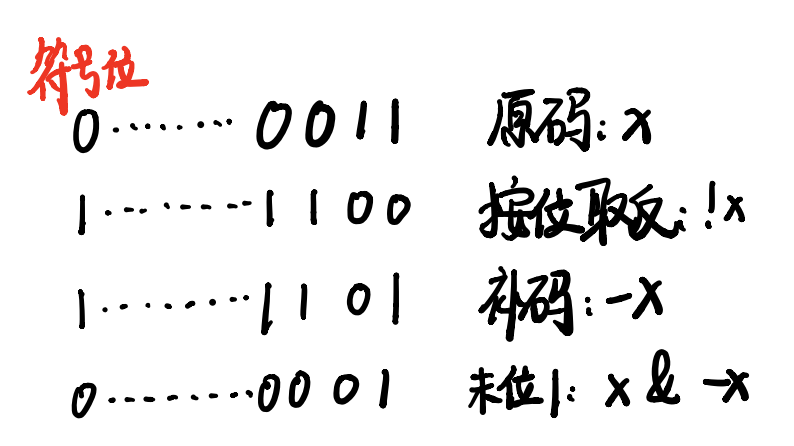 符号位
0········0011 原码: x
1········1100 按位取反: !x
1········1101 补码: -x
0········0001 末位1: x & -x